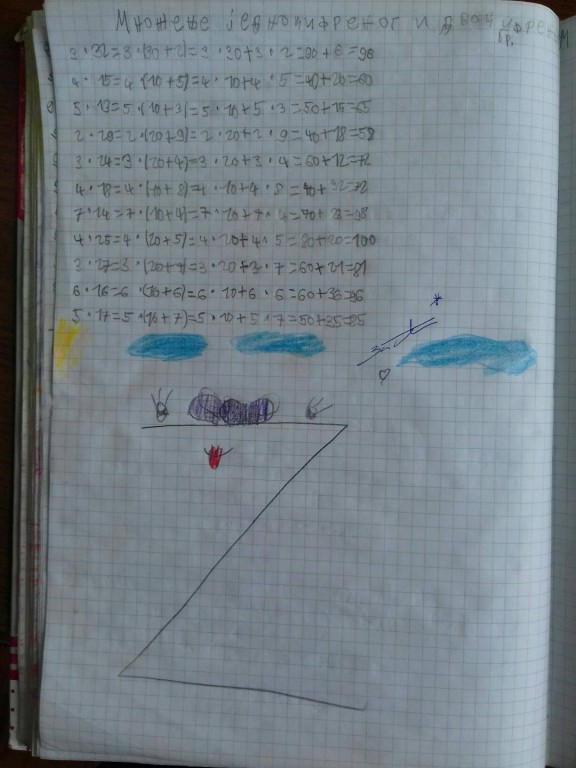 Множење једноцифреног и двоцифреног бр.
3·32=3·(30+2)=3·30+3·2=90+6=96
4·15=4·(10+5)=4·10+4·5=40+20=60
5·13=5·(10+3)=5·10+5·3=50+15=65
2·29=2·(20+9)=2·20+2·9=40+18=58
3·24=3·(20+4)=3·20+3·4=60+12=72
4·18=4·(10+8)=4·10+4·8=40+32=72
7·14=7·(10+4)=7·10+7·4=70+28=98
4·25=4·(20+5)=4·20+4·5=80+20=100
3·27=3·(20+7)=3·20+3·7=60+21=81
6·16=6·(10+6)=6·10+6·6=60+36=96
5·17=5·(10+7)=5·10+5·7=50+35=85